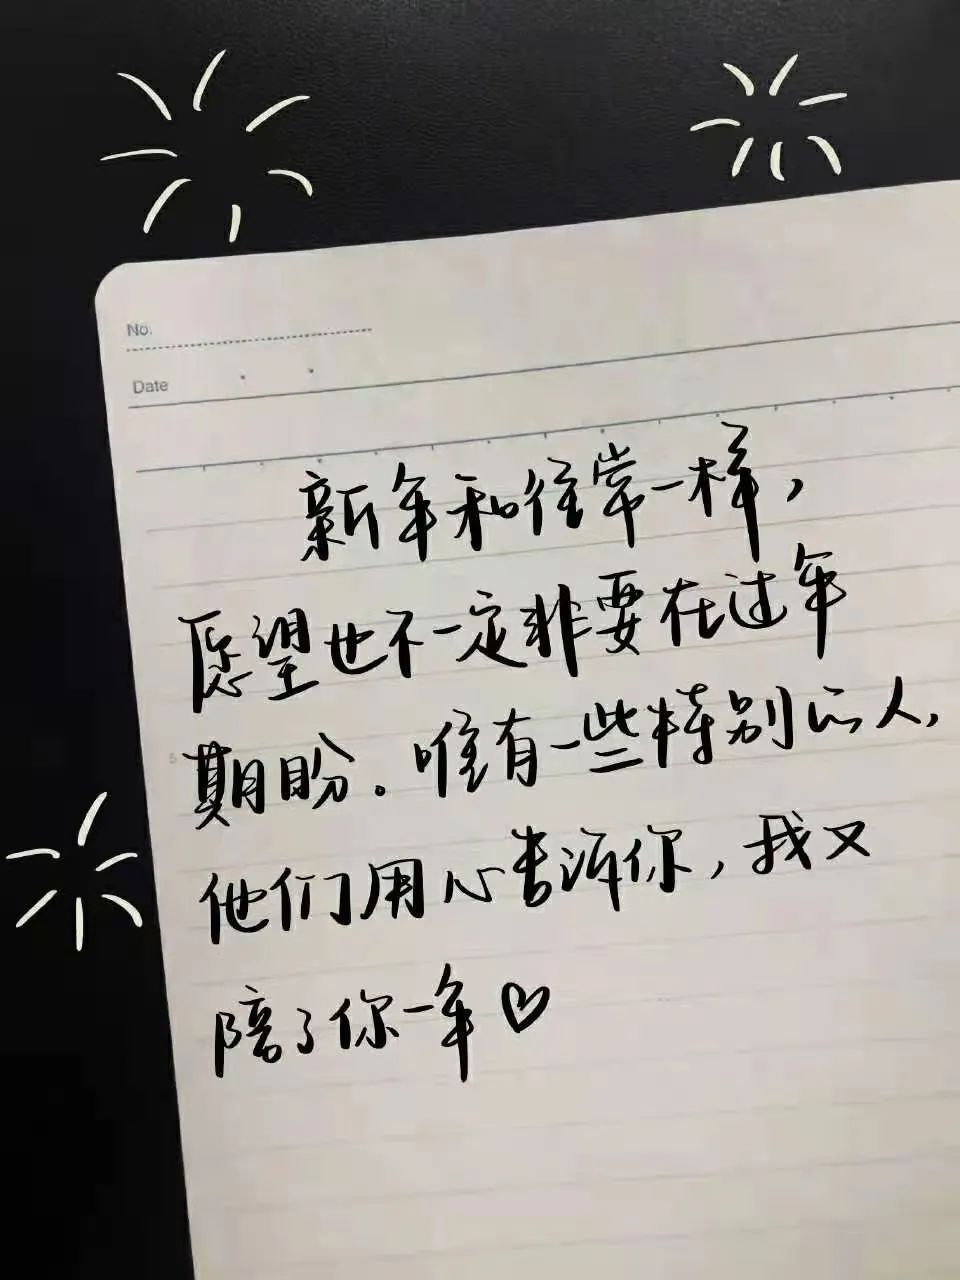 No.
Date
新年和往常一样,
愿望也不一定非要在过年
期盼。唯有一些特别的人,
5
他们用心告诉你,我又
陪了你一年♡